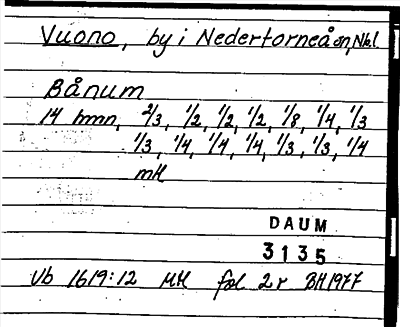 Vuono, by i Nedertorneå sn, Nbl.
Bånum
14 hmn, 2/3, 1/2, 1/2, 1/2, 1/8, 1/4, 1/3
1/3, 1/4, 1/4, 1/4, 1/3, 1/3, 1/4
mH
DAUM
3135
Vb 1619:12 MH fol 2r BH1977